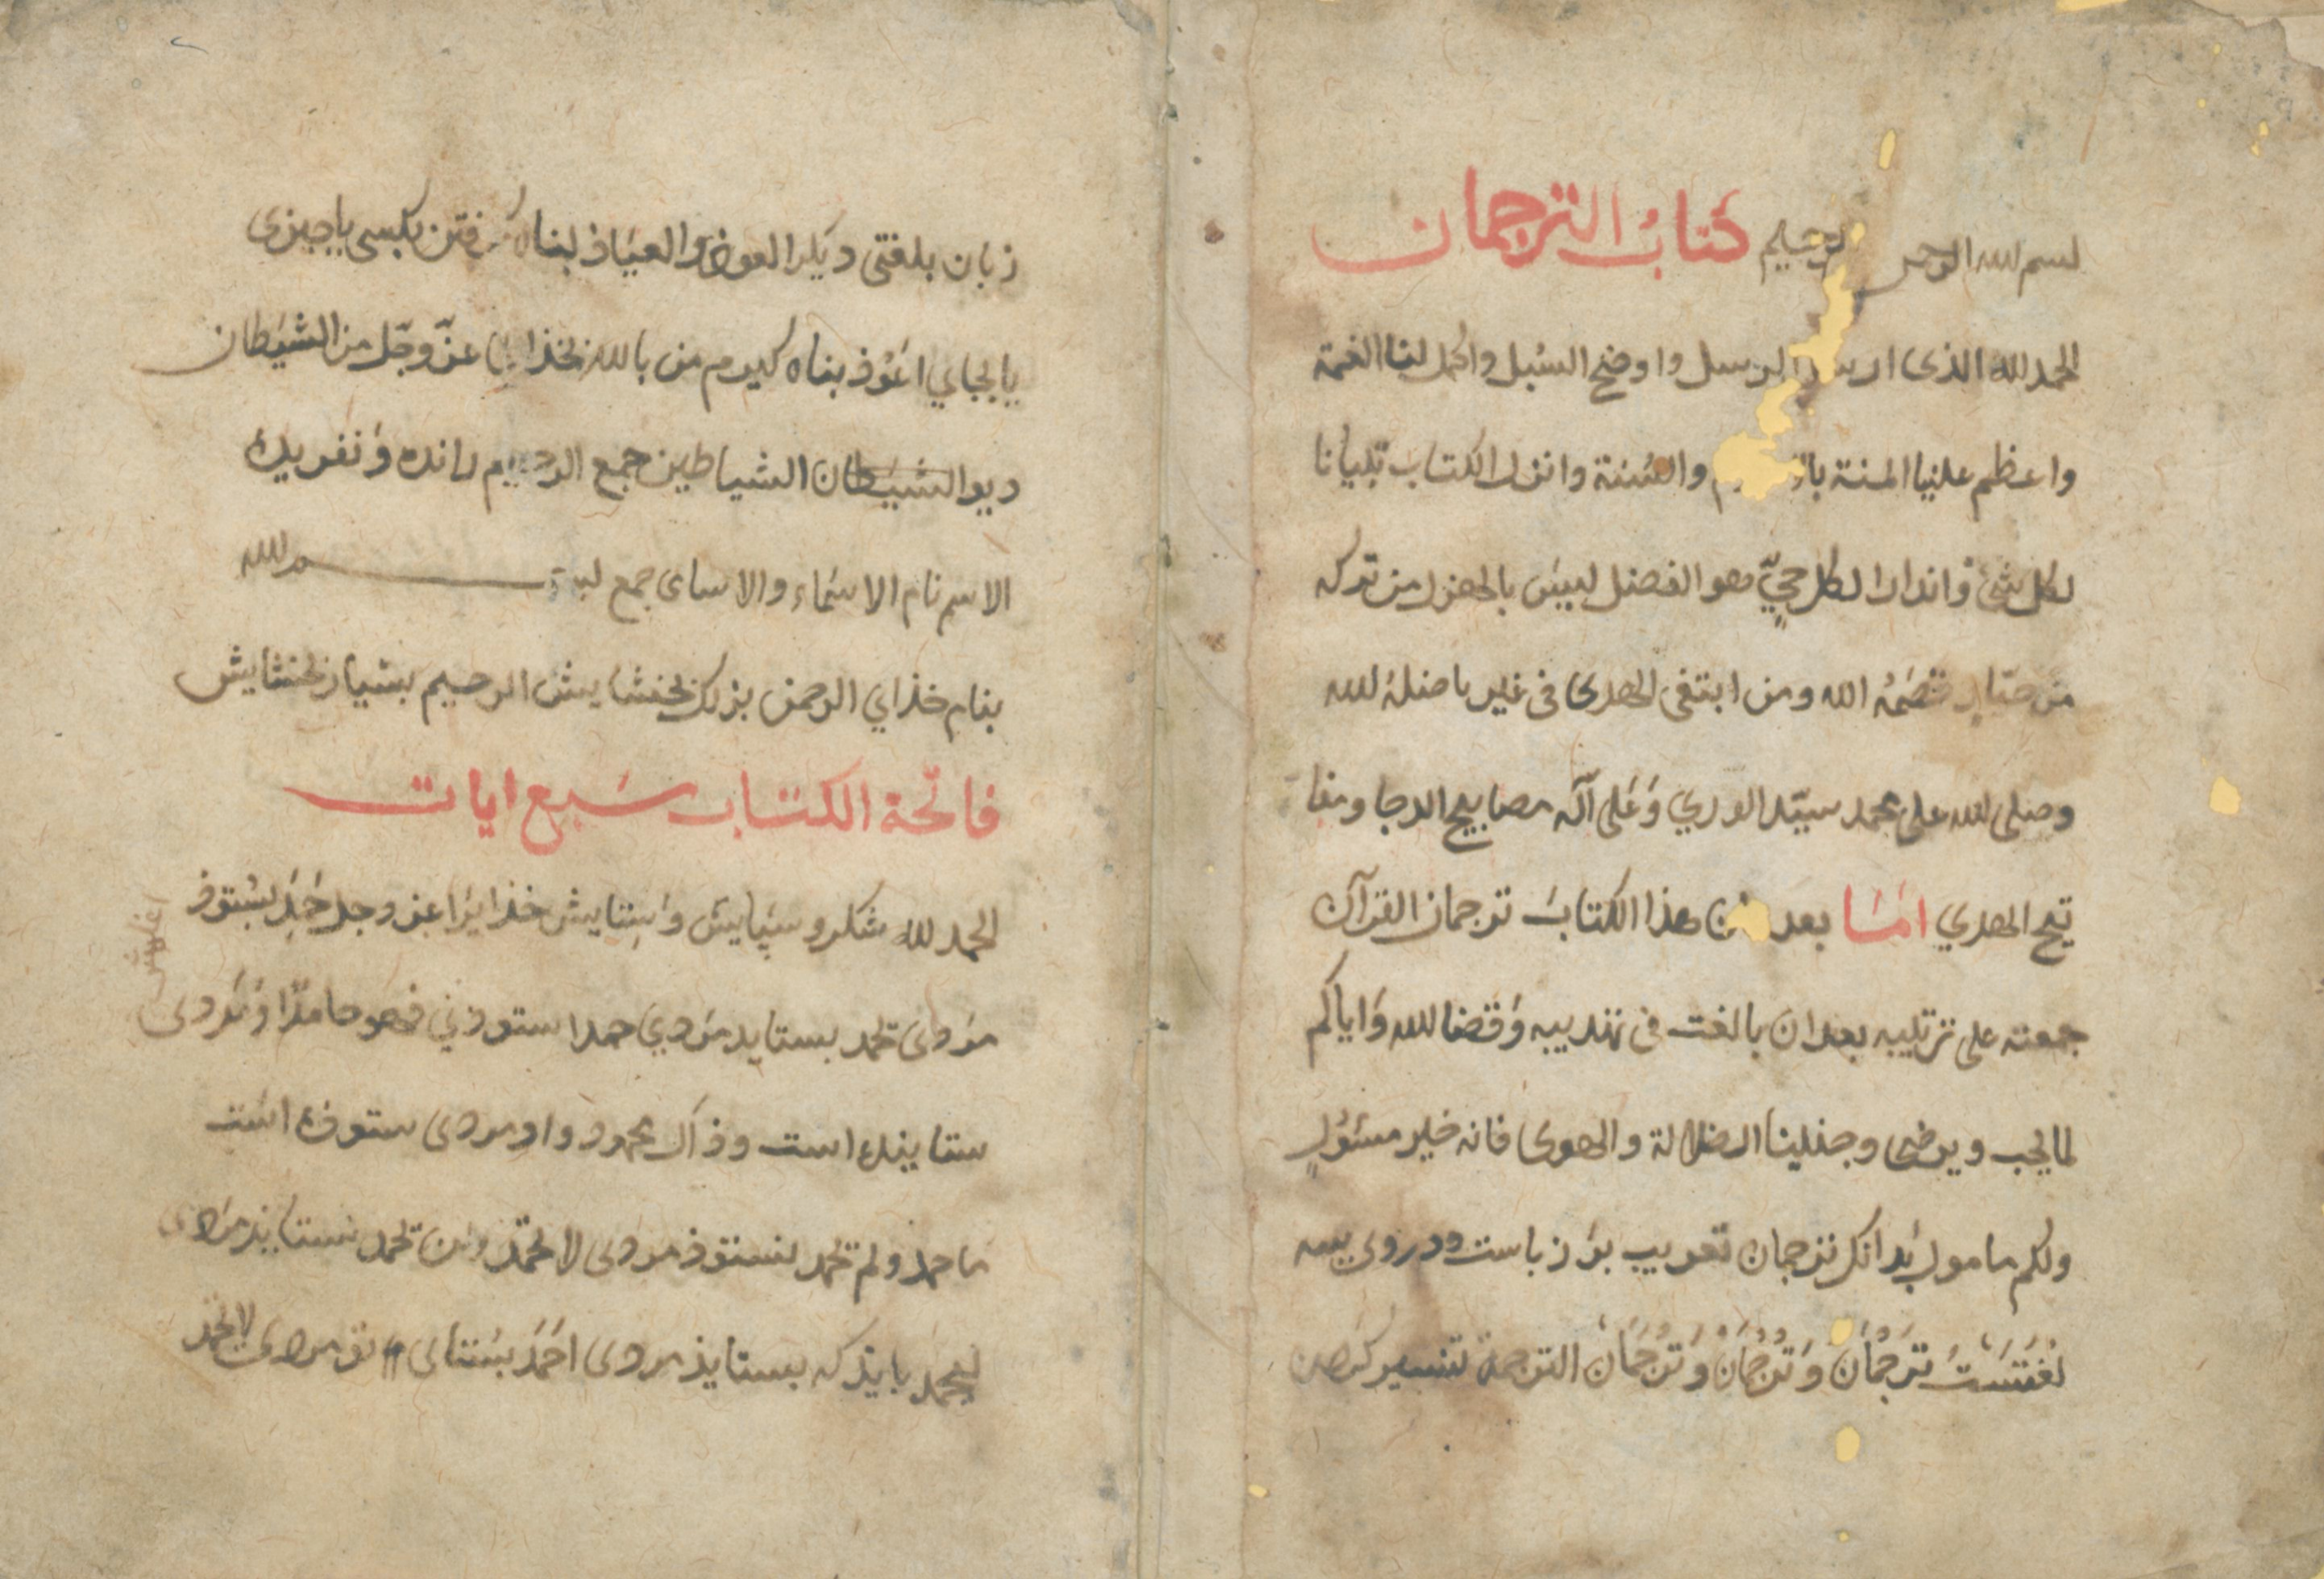 بسم الله الرحمن الرحيم كتاب الترجمان
الحمد لله الذى ارسل الرسل واوضح السبل واكمل لنا النعمة
واعظم علينا المنة والسنة وانزل الكتاب تبيانا
لكل شئ وانذارا لكل حيّ هو الفصل ليس بالهزل من تركه
من جبّار قصمه الله ومن ابتغى الهدى فى غيره اضله الله
وصلى الله على محمد سيّد الورى وعلى آله مصابيح الدجا ومفا
تيح الهدي امّا بعد هذا الكتاب ترجمان القرآن
جمعته على ترتيبه بعد ان بالغت فى تهذيبه وفقنا الله واياكم
لما يحب ويرضى وجنبنا الضلالة والهوى فانه خير مسئول
ولكم مامول بدانك ترجمان تعريب است ودروى سه
لغتست تَرجَمان وتُرجُمان وتَرجُمان الترجمة تفسير كردن
زبان بلغتى ديكر العوذ والعياذ پناه كرفتن بكسى يا چيزى
يا بجاي اعوذ پناه كيرم من بالله بخذاى عزّ وجّل من الشيطان
ديو الشيطان الشياطين جمع الرجيم رانده ونفريده
الاسم نام الاسماء والاسامى جمع بسم الله
بنام خذاي الرحمن بزرك بخشايش الرحيم بسيار بخشايش
فاتحة الكتاب سبع ايات
الحمد لله شكر وسپايش وستايش خذايرا عز وجل حَمِدَ بستوذ
مردى يحمد بستايد مردي حمدا ستودني فهو حامد او مردى
ستاينده است وذاك محمود واو مردى ستوذه است
ما حمد ولم يحمد نستوذ مردى لا يحمد ولن يحمد نستايذ مردى
ليحمد بايذ كه بستايذ مردى احمد بستاى تو مردى لا تحمد